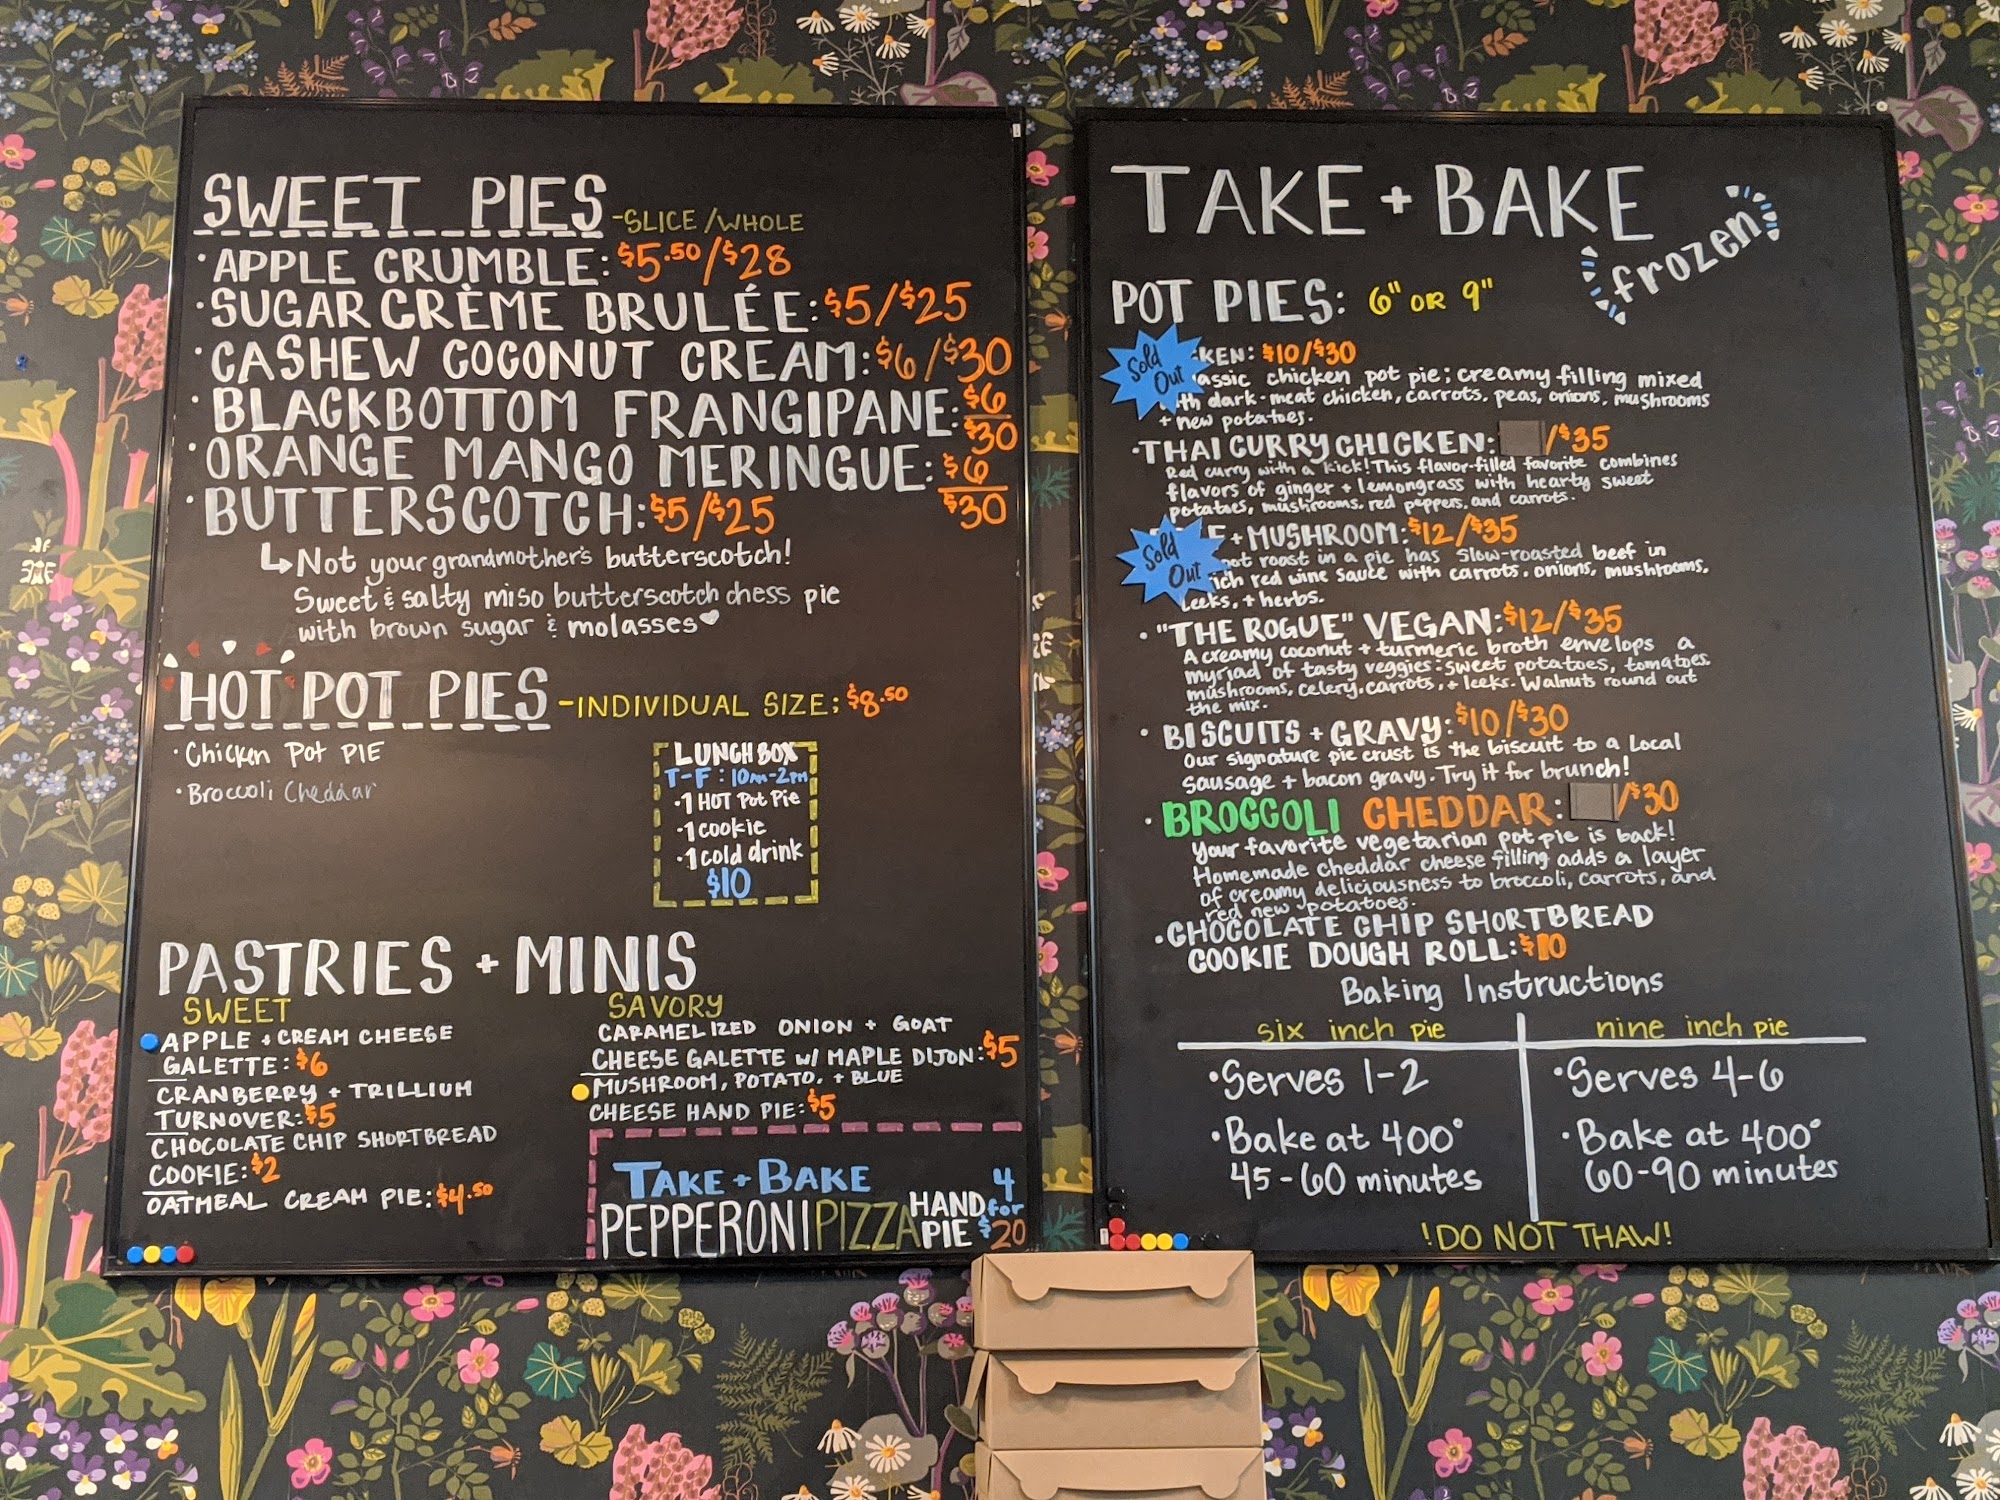 SWEET PIES -SLICE/WHOLE
·APPLE CRUMBLE: $5.50/$28
·SUGAR CRÈME BRULÉE: $5/$25
·CASHEW COCONUT CREAM: $6/$30
·BLACKBOTTOM FRANGIPANE: $6
$30
·ORANGE MANGO MERINGUE: $6
$30
·BUTTERSCOTCH: $5/$25
Not your grandmother's butterscotch!
Sweet & salty miso butterscotch chess pie
with brown sugar & molasses
HOT POT PIES -INDIVIDUAL SIZE: $8.50
·Chicken Pot PIE
·Broccoli Cheddar
LUNCH BOX
T-F: 10AM-2PM
·1 HOT Pot Pie
·1 cookie
·1 cold drink
$10
PASTRIES + MINIS
SWEET
APPLE + CREAM CHEESE
GALETTE: $6
CRANBERRY + TRILLIUM
TURNOVER: $5
CHOCOLATE CHIP SHORTBREAD
COOKIE: $2
OATMEAL CREAM PIE: $4.50
SAVORY
CARAMELIZED ONION + GOAT
CHEESE GALETTE W/ MAPLE DIJON: $5
MUSHROOM, POTATO, + BLUE
CHEESE HAND PIE: $5
TAKE + BAKE
PEPPERONI PIZZA HAND PIE 4 for $20
TAKE + BAKE
frozen
POT PIES: 6" OR 9"
Sold Out
KEN: $10/$30
assic chicken pot pie; creamy filling mixed
th dark-meat chicken, carrots, peas, onions, mushrooms
+ new potatoes.
·THAI CURRY CHICKEN: /$35
Red curry with a kick! This flavor-filled favorite combines
flavors of ginger + lemongrass with hearty sweet
potatoes, mushrooms, red peppers, and carrots.
Sold Out
F + MUSHROOM: $12/$35
ot roast in a pie has slow-roasted beef in
ich red wine sauce with carrots, onions, mushrooms,
leeks, + herbs.
·"THE ROGUE" VEGAN: $12/$35
A creamy coconut + turmeric broth envelops a
myriad of tasty veggies: sweet potatoes, tomatoes,
mushrooms, celery, carrots, + leeks. Walnuts round out
the mix.
·BISCUITS + GRAVY: $10/$30
Our signature pie crust is the biscuit to a local
sausage + bacon gravy. Try it for brunch!
·BROCCOLI CHEDDAR: /$30
Your favorite vegetarian pot pie is back!
Homemade cheddar cheese filling adds a layer
of creamy deliciousness to broccoli, carrots, and
red new potatoes.
·CHOCOLATE CHIP SHORTBREAD
COOKIE DOUGH ROLL: $10
Baking Instructions
six inch pie
·Serves 1-2
·Bake at 400°
45-60 minutes
nine inch pie
·Serves 4-6
·Bake at 400°
60-90 minutes
!DO NOT THAW!